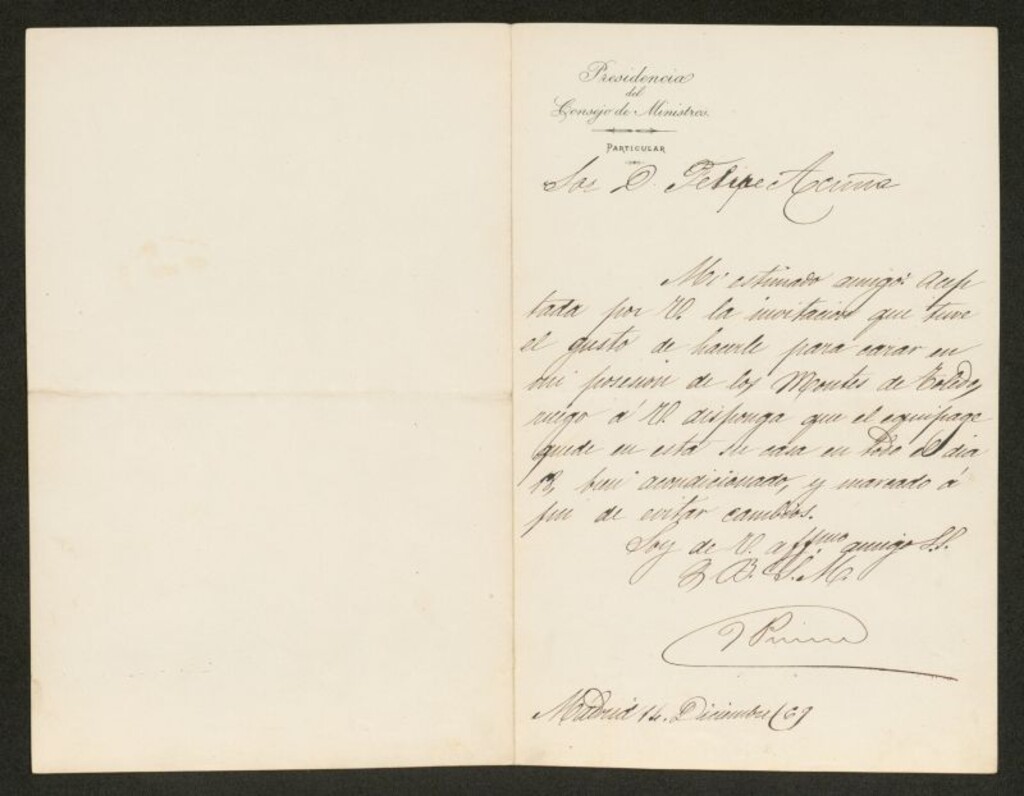 Presidencia
del
Consejo de Ministros.
PARTICULAR
Sor D. Felipe Acuña
Mi estimado amigo: Acep
tada por V. la invitacion que tuve
el gusto de hacerle para cazar en
mi posesion de los Montes de Toledo,
ruego á V. disponga que el equipage
quede en esta su casa en todo el dia
bien acondicionado, y marcado á
fin de evitar cambios.
Soy de V. affmo amigo S.S.
Q. B. S. M.
J Prim
Madrid 14. Diciembre /69